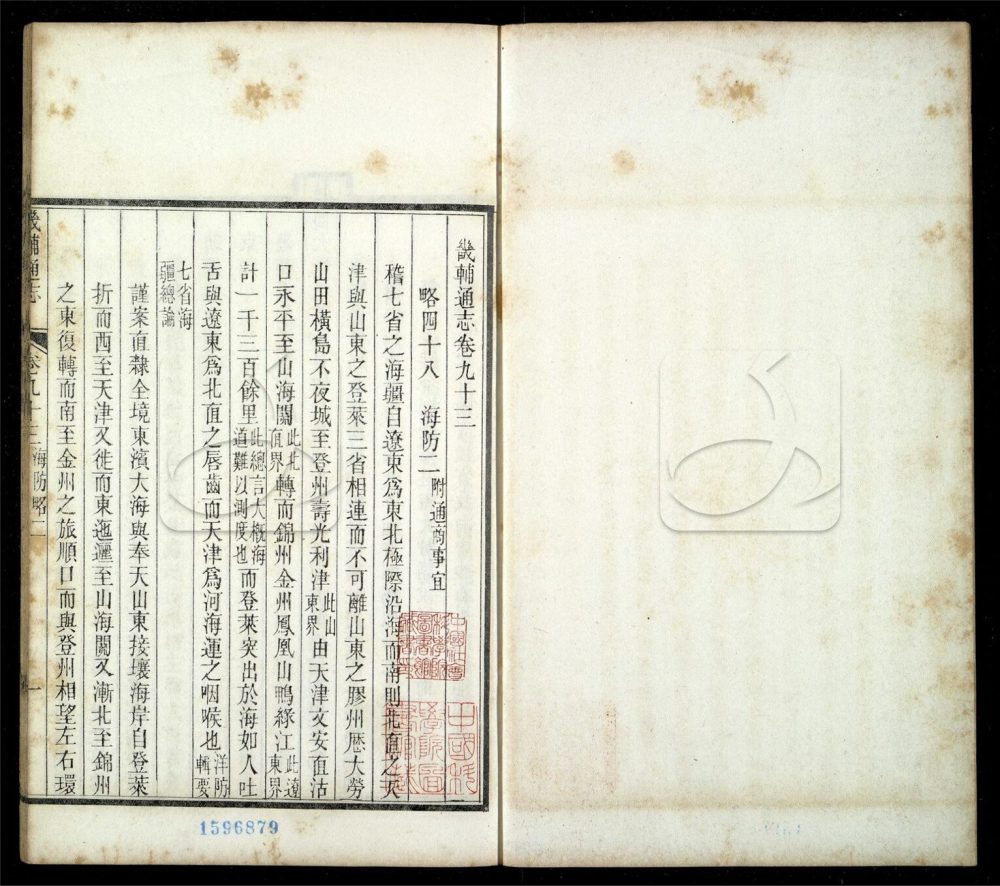 畿輔通志卷九十三
略四十八　海防二附通商事宜
稽七省之海疆自遼東爲東北極際沿海而南則北直之天
津與山東之登萊三省相連而不可離山東之膠州歷大勞
山田橫島不夜城至登州壽光利津此山東界由天津文安直沽
口永平至山海關此北直界轉而錦州金州鳳凰山鴨綠江此遼東界
計一千三百餘里此總言大概海道難以測度也而登萊突出於海如人吐
舌與遼東爲北直之唇齒而天津爲河海運之咽喉也洋防輯要
七省海疆總論
謹案直隸全境東濱大海與奉天山東接壤海岸自登萊
折而西至天津又徙而東迤邐至山海關又漸北至錦州
之東復轉而南至金州之旅順口而與登州相望左右環
畿輔通志　卷九十三　海防略二　一
1596879